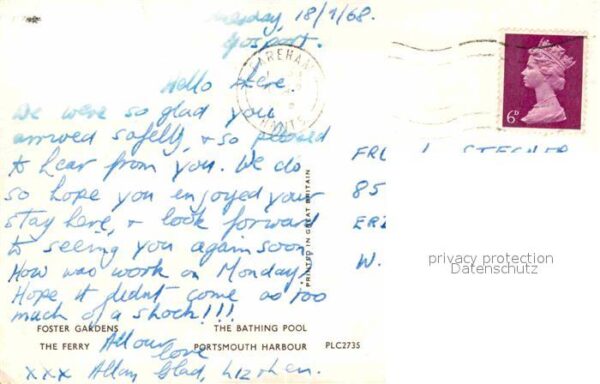 18/1/68.
Gosport.
FAREHAM
HANTS
6D
Hello there,
We were so glad you
arrived safely, + so pleased
to hear from you. We do
so hope you enjoyed your
stay here, + look forward
to seeing you again soon
How was work on Monday?
Hope it didnt come as too
much of a shock!!!
All our
love
xxx Allan,
FRL
85
ER
W.
PRINTED IN GREAT BRITAIN
privacy protection
Datenschutz
FOSTER GARDENS THE BATHING POOL
THE FERRY PORTSMOUTH HARBOUR PLC2735